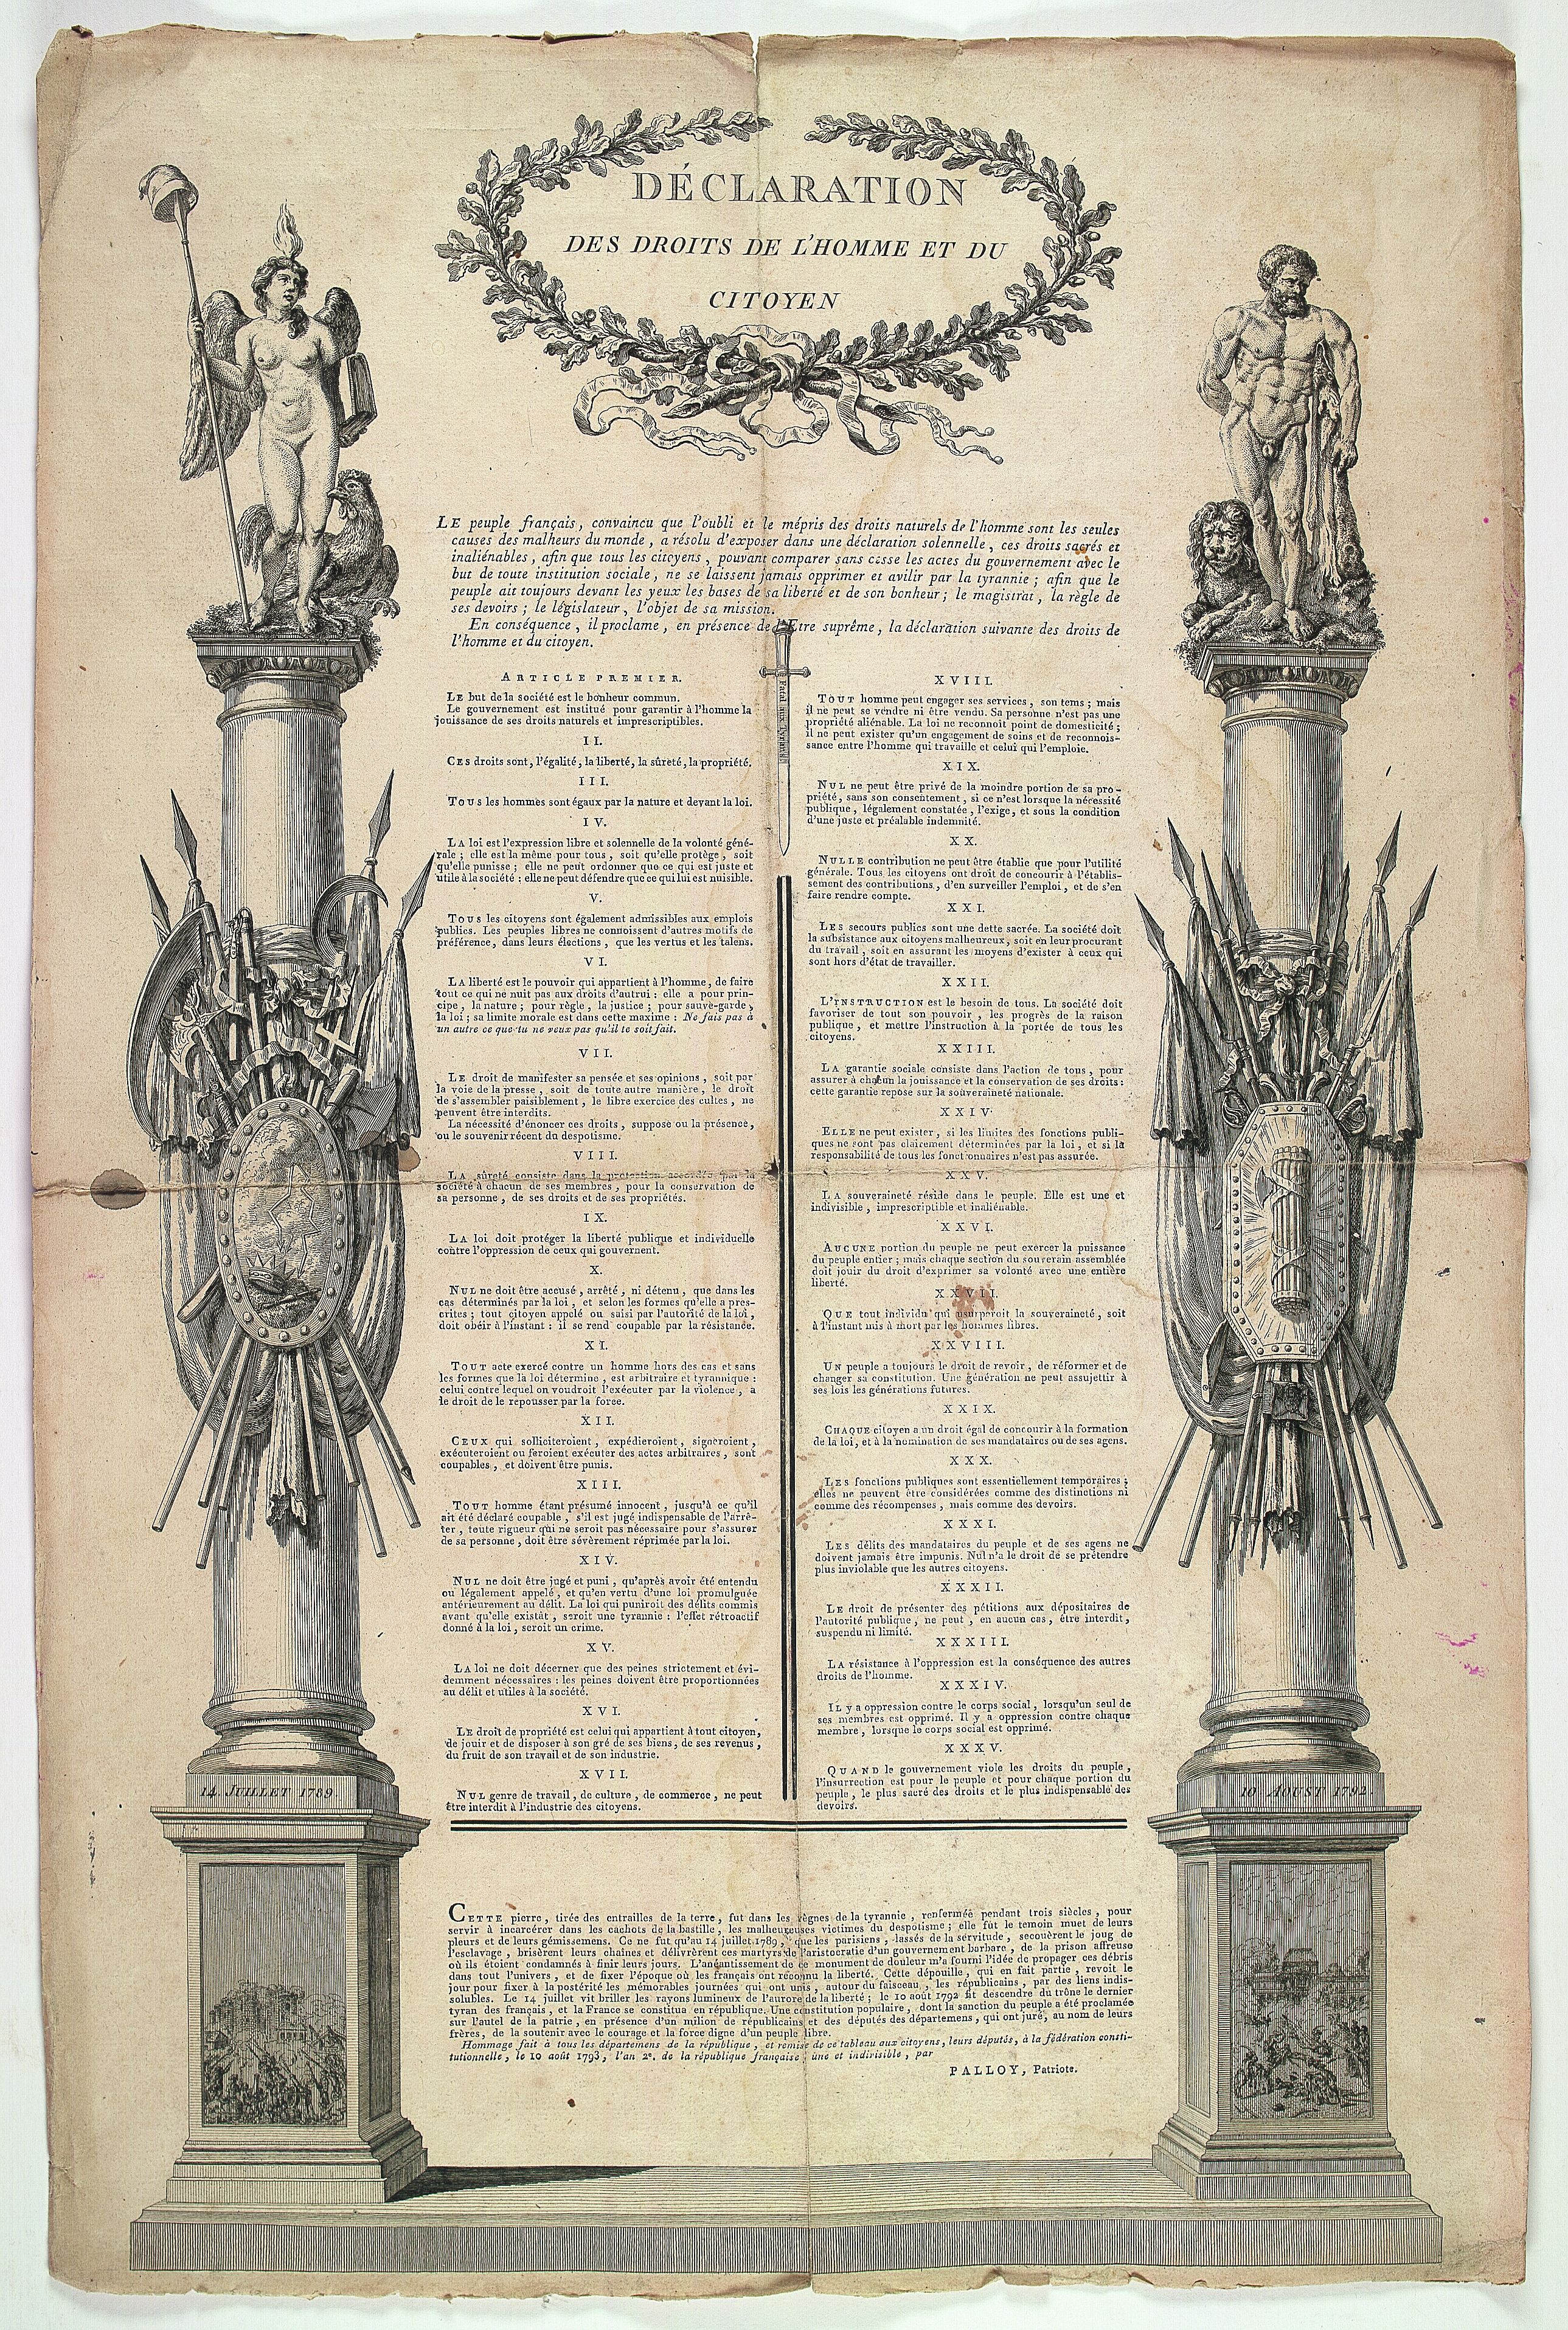 DÉCLARATION
DES DROITS DE L'HOMME ET DU
CITOYEN
LE peuple français, convaincu que l'oubli et le mépris des droits naturels de l'homme sont les seules
causes des malheurs du monde, a résolu d'exposer dans une déclaration solennelle, ces droits sacrés et
inaliénables, afin que tous les citoyens, pouvant comparer sans cesse les actes du gouvernement avec le
but de toute institution sociale, ne se laissent jamais opprimer et avilir par la tyrannie; afin que le
peuple ait toujours devant les yeux les bases de sa liberté et de son bonheur; le magistrat, la règle de
ses devoirs; le législateur, l'objet de sa mission.
En conséquence, il proclame, en présence de l'Etre suprême, la déclaration suivante des droits de
l'homme et du citoyen.
ARTICLE PREMIER.
LE but de la société est le bonheur commun.
Le gouvernement est institué pour garantir à l'homme la
jouissance de ses droits naturels et imprescriptibles.
II.
CES droits sont, l'égalité, la liberté, la sûreté, la propriété.
III.
TOUS les hommes sont égaux par la nature et devant la loi.
IV.
LA loi est l'expression libre et solennelle de la volonté géné-
rale; elle est la même pour tous, soit qu'elle protège, soit
qu'elle punisse; elle ne peut ordonner que ce qui est juste et
utile à la société: elle ne peut défendre que ce qui lui est nuisible.
V.
TOUS les citoyens sont également admissibles aux emplois
publics. Les peuples libres ne connoissent d'autres motifs de
préférence, dans leurs élections, que les vertus et les talens.
VI.
LA liberté est le pouvoir qui appartient à l'homme, de faire
tout ce qui ne nuit pas aux droits d'autrui: elle a pour prin-
cipe, la nature; pour règle, la justice; pour sauve-garde,
la loi; sa limite morale est dans cette maxime: Ne fais pas à
un autre ce que tu ne veux pas qu'il te soit fait.
VII.
LE droit de manifester sa pensée et ses opinions, soit par
la voie de la presse, soit de toute autre manière, le droit
de s'assembler paisiblement, le libre exercice des cultes, ne
peuvent être interdits.
La nécessité d'énoncer ces droits, suppose ou la présence,
ou le souvenir récent du despotisme.
VIII.
LA sûreté consiste dans la protection accordée par la
société à chacun de ses membres, pour la conservation de
sa personne, de ses droits et de ses propriétés.
IX.
LA loi doit protéger la liberté publique et individuelle
contre l'oppression de ceux qui gouvernent.
X.
NUL ne doit être accusé, arrêté, ni détenu, que dans les
cas déterminés par la loi, et selon les formes qu'elle a pres-
crites; tout citoyen appelé ou saisi par l'autorité de la loi,
doit obéir à l'instant: il se rend coupable par la résistance.
XI.
TOUT acte exercé contre un homme hors des cas et sans
les formes que la loi détermine, est arbitraire et tyrannique:
celui contre lequel on voudroit l'exécuter par la violence, a
le droit de le repousser par la force.
XII.
CEUX qui solliciteroient, expédieroient, signeroient,
exécuteroient ou feroient exécuter des actes arbitraires, sont
coupables, et doivent être punis.
XIII.
TOUT homme étant présumé innocent, jusqu'à ce qu'il
ait été déclaré coupable, s'il est jugé indispensable de l'arrê-
ter, toute rigueur qui ne seroit pas nécessaire pour s'assurer
de sa personne, doit être sévèrement réprimée par la loi.
XIV.
NUL ne doit être jugé et puni, qu'après avoir été entendu
ou légalement appelé, et qu'en vertu d'une loi promulguée
antérieurement au délit. La loi qui puniroit des délits commis
avant qu'elle existât, seroit une tyrannie: l'effet rétroactif
donné à la loi, seroit un crime.
XV.
LA loi ne doit décerner que des peines strictement et évi-
demment nécessaires: les peines doivent être proportionnées
au délit et utiles à la société.
XVI.
LE droit de propriété est celui qui appartient à tout citoyen,
de jouir et de disposer à son gré de ses biens, de ses revenus,
du fruit de son travail et de son industrie.
XVII.
NUL genre de travail, de culture, de commerce, ne peut
être interdit à l'industrie des citoyens.
Fatal aux Tyrans
XVIII.
TOUT homme peut engager ses services, son tems; mais
il ne peut se vendre ni être vendu. Sa personne n'est pas une
propriété aliénable. La loi ne reconnoît point de domesticité;
il ne peut exister qu'un engagement de soins et de reconnois-
sance entre l'homme qui travaille et celui qui l'emploie.
XIX.
NUL ne peut être privé de la moindre portion de sa pro-
priété, sans son consentement, si ce n'est lorsque la nécessité
publique, légalement constatée, l'exige, et sous la condition
d'une juste et préalable indemnité.
XX.
NULLE contribution ne peut être établie que pour l'utilité
générale. Tous les citoyens ont droit de concourir à l'établis-
sement des contributions, d'en surveiller l'emploi, et de s'en
faire rendre compte.
XXI.
LES secours publics sont une dette sacrée. La société doit
la subsistance aux citoyens malheureux, soit en leur procurant
du travail, soit en assurant les moyens d'exister à ceux qui
sont hors d'état de travailler.
XXII.
L'INSTRUCTION est le besoin de tous. La société doit
favoriser de tout son pouvoir, les progrès de la raison
publique, et mettre l'instruction à la portée de tous les
citoyens.
XXIII.
LA garantie sociale consiste dans l'action de tous, pour
assurer à chacun la jouissance et la conservation de ses droits:
cette garantie repose sur la souveraineté nationale.
XXIV.
ELLE ne peut exister, si les limites des fonctions publi-
ques ne sont pas clairement déterminées par la loi, et si la
responsabilité de tous les fonctionnaires n'est pas assurée.
XXV.
LA souveraineté réside dans le peuple. Elle est une et
indivisible, imprescriptible et inaliénable.
XXVI.
AUCUNE portion du peuple ne peut exercer la puissance
du peuple entier; mais chaque section du souverain assemblée
doit jouir du droit d'exprimer sa volonté avec une entière
liberté.
XXVII.
QUE tout individu qui usurperoit la souveraineté, soit
à l'instant mis à mort par les hommes libres.
XXVIII.
UN peuple a toujours le droit de revoir, de réformer et de
changer sa constitution. Une génération ne peut assujettir à
ses lois les générations futures.
XXIX.
CHAQUE citoyen a un droit égal de concourir à la formation
de la loi, et à la nomination de ses mandataires ou de ses agens.
XXX.
LES fonctions publiques sont essentiellement temporaires;
elles ne peuvent être considérées comme des distinctions ni
comme des récompenses, mais comme des devoirs.
XXXI.
LES délits des mandataires du peuple et de ses agens ne
doivent jamais être impunis. Nul n'a le droit de se prétendre
plus inviolable que les autres citoyens.
XXXII.
LE droit de présenter des pétitions aux dépositaires de
l'autorité publique, ne peut, en aucun cas, être interdit,
suspendu ni limité.
XXXIII.
LA résistance à l'oppression est la conséquence des autres
droits de l'homme.
XXXIV.
IL y a oppression contre le corps social, lorsqu'un seul de
ses membres est opprimé. Il y a oppression contre chaque
membre, lorsque le corps social est opprimé.
XXXV.
QUAND le gouvernement viole les droits du peuple,
l'insurrection est pour le peuple et pour chaque portion du
peuple, le plus sacré des droits et le plus indispensable des
devoirs.
14 JUILLET 1789
10 AOUST 1792
CETTE pierre, tirée des entrailles de la terre, fut dans les règnes de la tyrannie, renfermée pendant trois siècles, pour
servir à incarcérer dans les cachots de la bastille, les malheureuses victimes du despotisme; elle fut le temoin muet de leurs
pleurs et de leurs gémissemens. Ce ne fut qu'au 14 juillet 1789, que les parisiens, lassés de la servitude, secouèrent le joug de
l'esclavage, brisèrent leurs chaînes et délivrèrent ces martyrs de l'aristocratie d'un gouvernement barbare, de la prison affreuse
où ils étoient condamnés à finir leurs jours. L'anéantissement de ce monument de douleur m'a fourni l'idée de propager ces débris
dans tout l'univers, et de fixer l'époque où les français ont reconnu la liberté. Cette dépouille, qui en fait partie, revoit le
jour pour fixer à la postérité les mémorables journées qui ont unis, autour du faisceau, les républicains, par des liens indis-
solubles. Le 14 juillet vit briller les rayons lumineux de l'aurore de la liberté; le 10 août 1792 fit descendre du trône le dernier
tyran des français, et la France se constitua en république. Une constitution populaire, dont la sanction du peuple a été proclamée
sur l'autel de la patrie, en présence d'un milion de républicains et des députés des départemens, qui ont juré, au nom de leurs
frères, de la soutenir avec le courage et la force digne d'un peuple libre.
Hommage fait à tous les départemens de la république, et remise de ce tableau aux citoyens, leurs députés, à la fédération consti-
tutionnelle, le 10 août 1793, l'an 2e. de la république française, une et indivisible, par
PALLOY, Patriote.